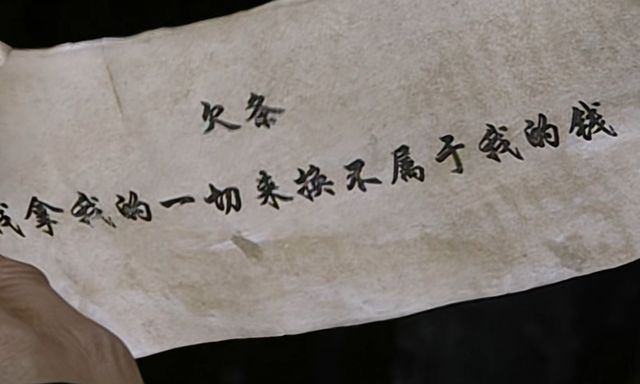 欠条
我拿我的一切来换不属于我的钱